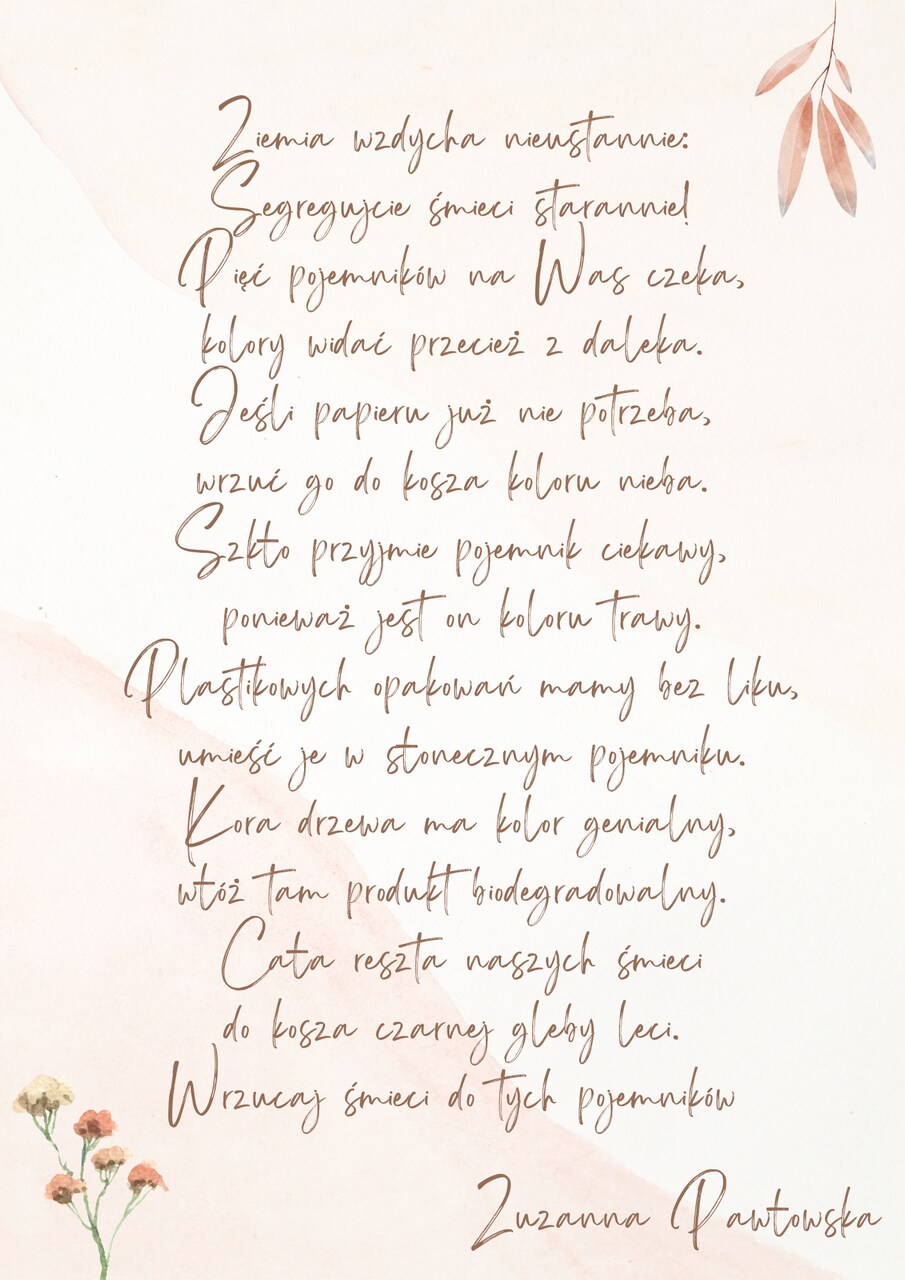 Ziemia wzdycha nieustannie:
Segregujcie śmieci starannie!
Pięć pojemników na Was czeka,
kolory widać przecież z daleka.
Jeśli papieru już nie potrzeba,
wrzuć go do kosza koloru nieba.
Szkło przyjmie pojemnik ciekawy,
ponieważ jest on koloru trawy.
Plastikowych opakowań mamy bez liku,
umieść je w słonecznym pojemniku.
Kora drzewa ma kolor genialny,
włóż tam produkt biodegradowalny.
Cała reszta naszych śmieci
do kosza czarnej gleby leci.
Wrzucaj śmieci do tych pojemników
Zuzanna Pawłowska